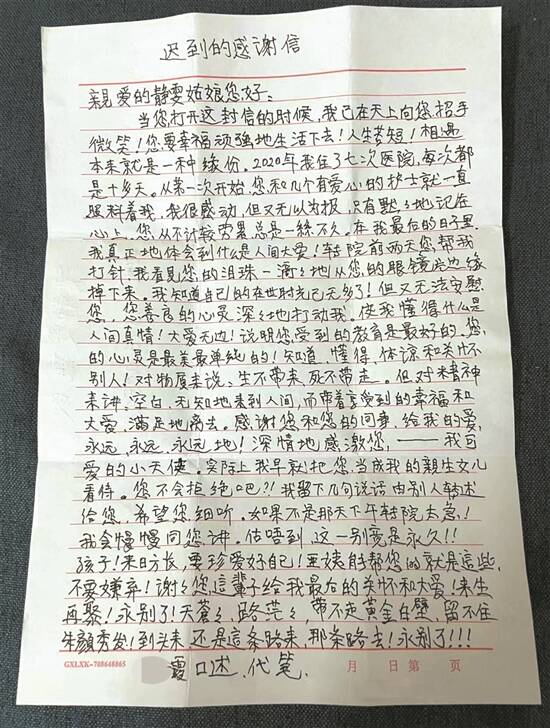 迟到的感谢信
親爱的静雯姑娘您好：
当您打开这封信的时候，我已在天上向您招手
微笑！您要幸福顽强地生活下去！人生苦短！相遇
本来就是一种缘份。2020年我住了七次医院，每次都
是十多天。从第一次开始您和几个有爱心的护士就一直
照料着我，我很感动，但又无以为报，只有默々地记在
心上，您从不计较劳累总是一絲不久。在我最后的日子里
我真正地体会到什么是人间大爱！转院前两天您帮我
打针，我看見您的泪珠一滴々地从您的眼镜片边缘
掉下来。我知道自己的在世时光已无多了！但又无法安慰
您，您善良的心灵深々地打动我。使我懂得什么是
人间真情！大爱无边！说明您受到的教育是最好的，您
的心灵是最美最单純的！知道、懂得、体谅和关怀
别人！对物质来说、生不带来，死不带走。但对精神
来讲，空白、无知地来到人间，而带着享受到的幸福和
大爱、满足地离去。感谢您和您的同事，给我的爱，
永远，永远，永远地！深情地感激您，——我可
爱的小天使。实际上我早就把您当成我的親生女儿
看待。您不会拒绝吧？！我留下几句说话由别人转述
给您，希望您细听。如果不是那天下午转院太急！
我会慢慢同您讲。估唔到这一别竟是永久！！
孩子！来日方长，要珍爱好自己！王姨能帮您的就是這些，
不要嫌弃！谢々您，這輩子给我最后的关怀和大爱！来生
再聚！永别了！天蒼々，路茫々，带不走黄金白璧，留不住
朱颜秀发！到头来还是這条路来，那条路去！永别了！！！
GXLXK-788648865 月 日第 页
霞口述、代笔．